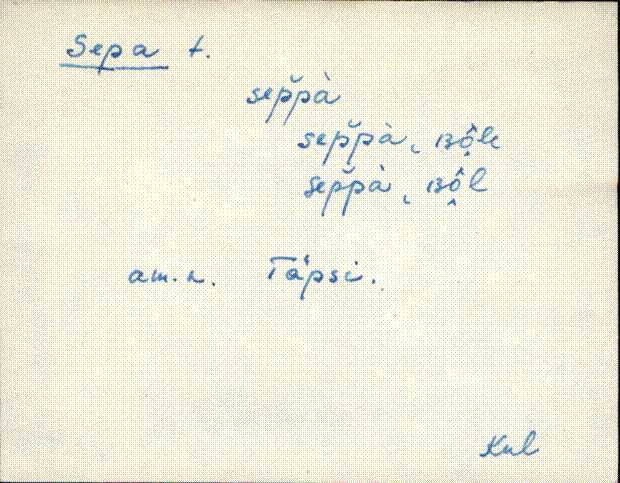 Sepa t.
sep̆pà
sep̆pà, ʙộle
sep̆pà, ʙộl
am.n. Täpsi.
Kul